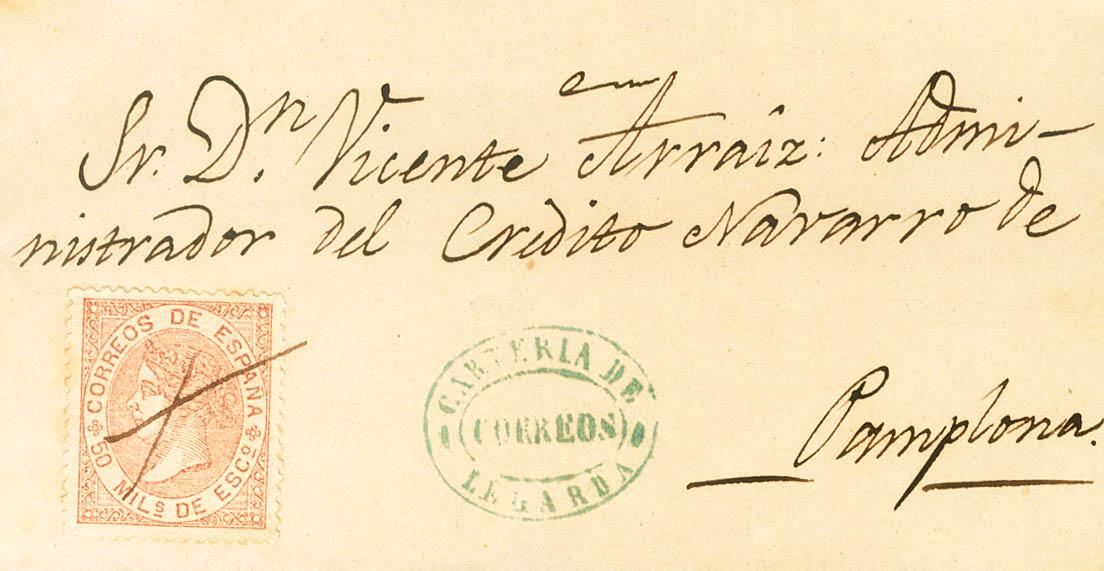 Sr. Dn. Vicente Arraiz: Admi-
nistrador del Crédito Navarro de
Pamplona.
CORREOS DE ESPAÑA
50 MILs DE ESCo
CARTERIA DE
CORREOS
LEGARDA